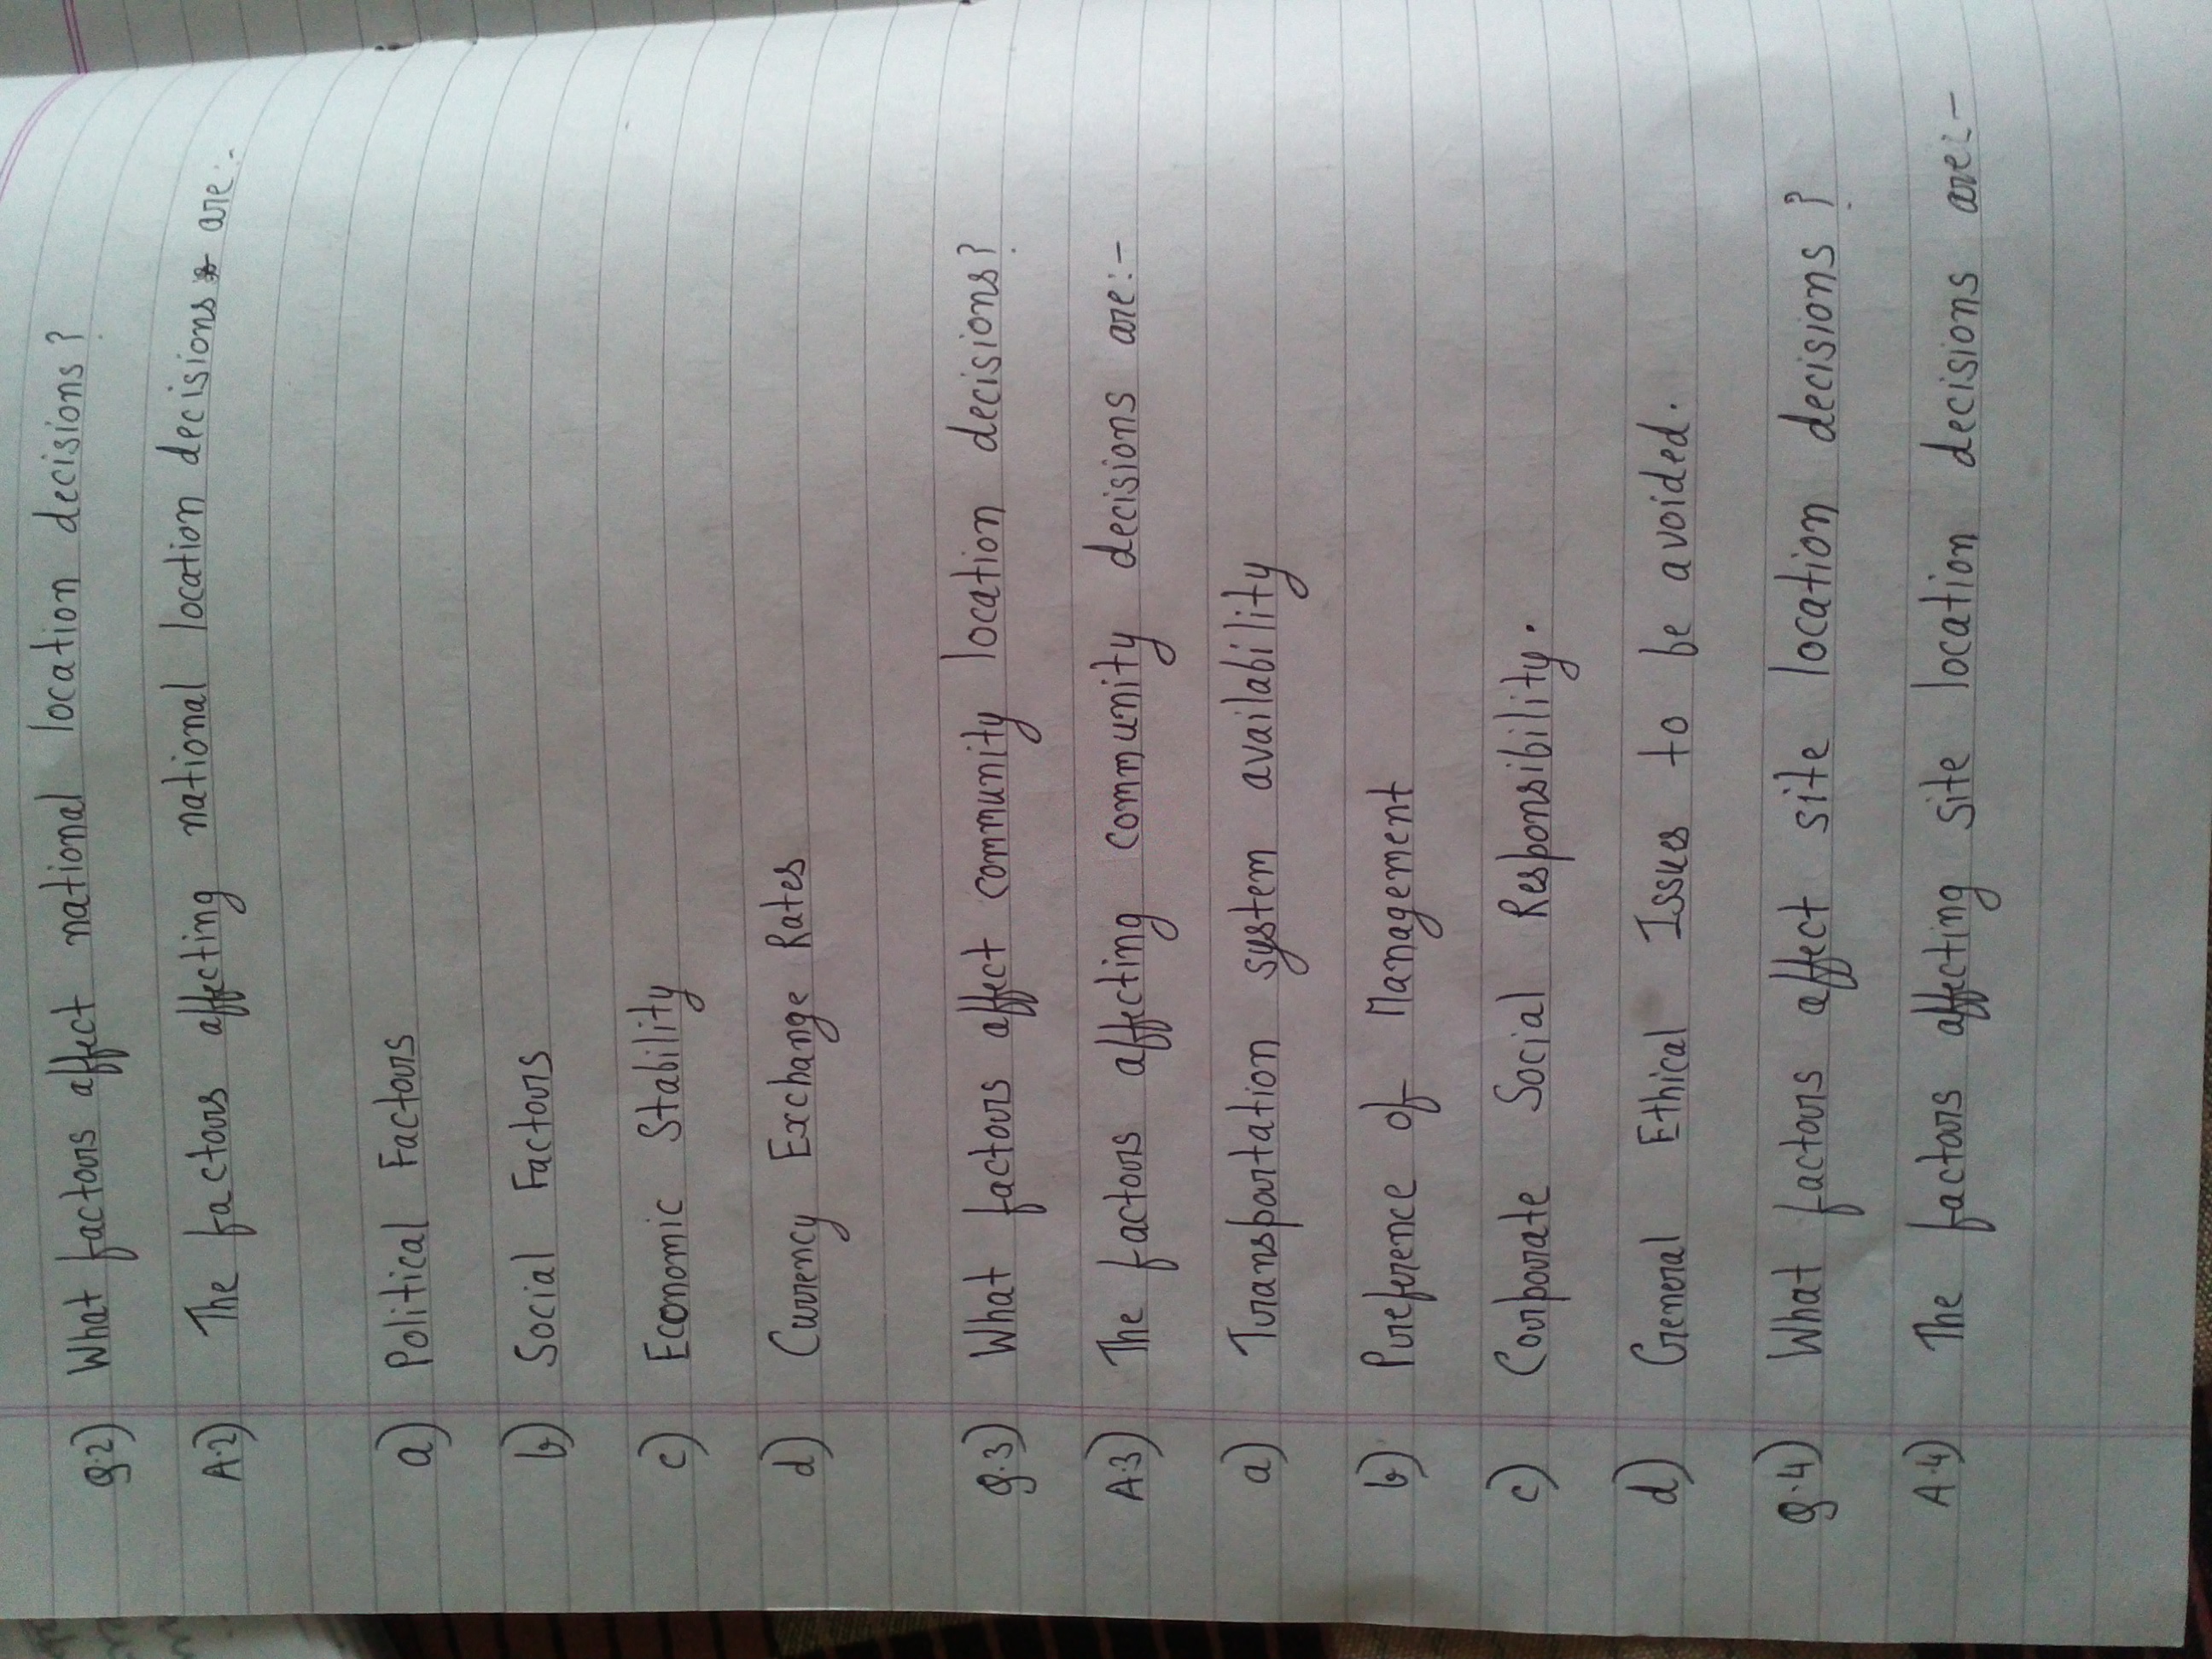 Q.2) What factors affect national location decisions?
A.2) The factors affecting national location decisions are:-
a) Political Factors
b) Social Factors
c) Economic Stability
d) Currency Exchange Rates
Q.3) What factors affect community location decisions?
A.3) The factors affecting community decisions are:-
a) Transportation system availability
b) Preference of Management
c) Corporate Social Responsibility.
d) General Ethical Issues to be avoided.
Q.4) What factors affect site location decisions?
A.4) The factors affecting site location decisions are:-